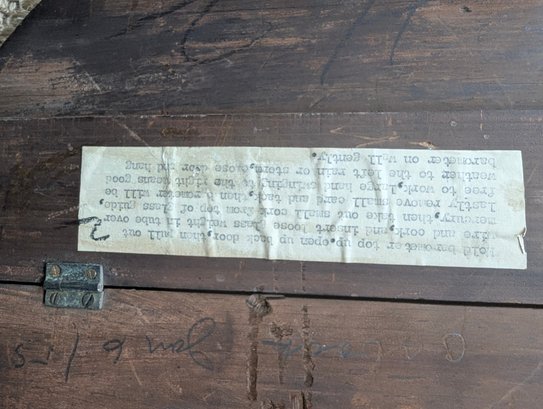 Hold barometer top up, open up back door, then pull out
wire and cork, and insert loose glass weight in tube over
mercury, then, take out small cork from top of glass guide,
lastly remove small card and tack, then b rometer will be
free to work, large hand swinging to the right means good
weather to the left rain or storm, close door and hang
barometer on wall gently.
2
Jan 6